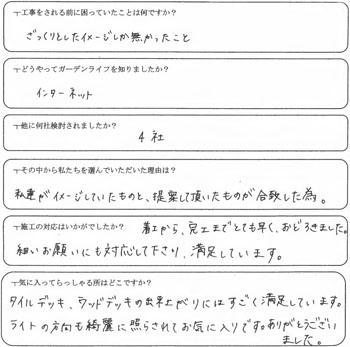 工事をされる前に困っていたことは何ですか？
ざっくりとしたイメージしか無かったこと
どうやってガーデンライフを知りましたか？
インターネット
他に何社検討されましたか？
4社
その中から私たちを選んでいただいた理由は？
私達がイメージしていたものと、提案して頂いたものが合致した為。
施工の対応はいかがでしたか？ 着工から、完工までとても早く、おどろきました。
細いお願いにも対応して下さり、満足しています。
気に入ってらっしゃる所はどこですか？
タイルデッキ、ウッドデッキの出来上がりにはすごく満足しています。
ライトの方向も綺麗に照らされてお気に入りです。ありがとうござい
ました。